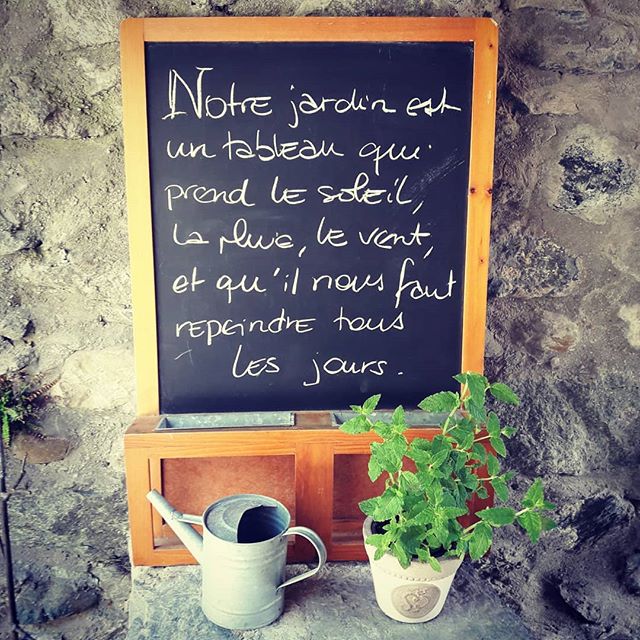 Notre jardin est
un tableau qui
prend le soleil,
la pluie, le vent,
et qu'il nous faut
repeindre tous
les jours.